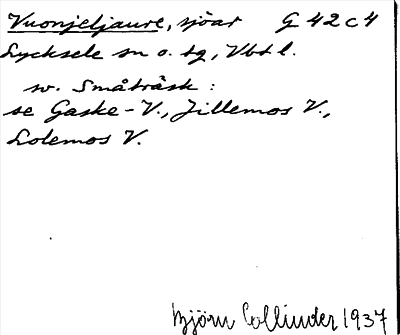 Vuonjeljaure, sjöar G 42 c 4
Lycksele sn o. tg, Vbtl.
sv. Småträsk :
se Gaske-V., Jillemos V.,
Lolemos V.
Björn Collinder 1937